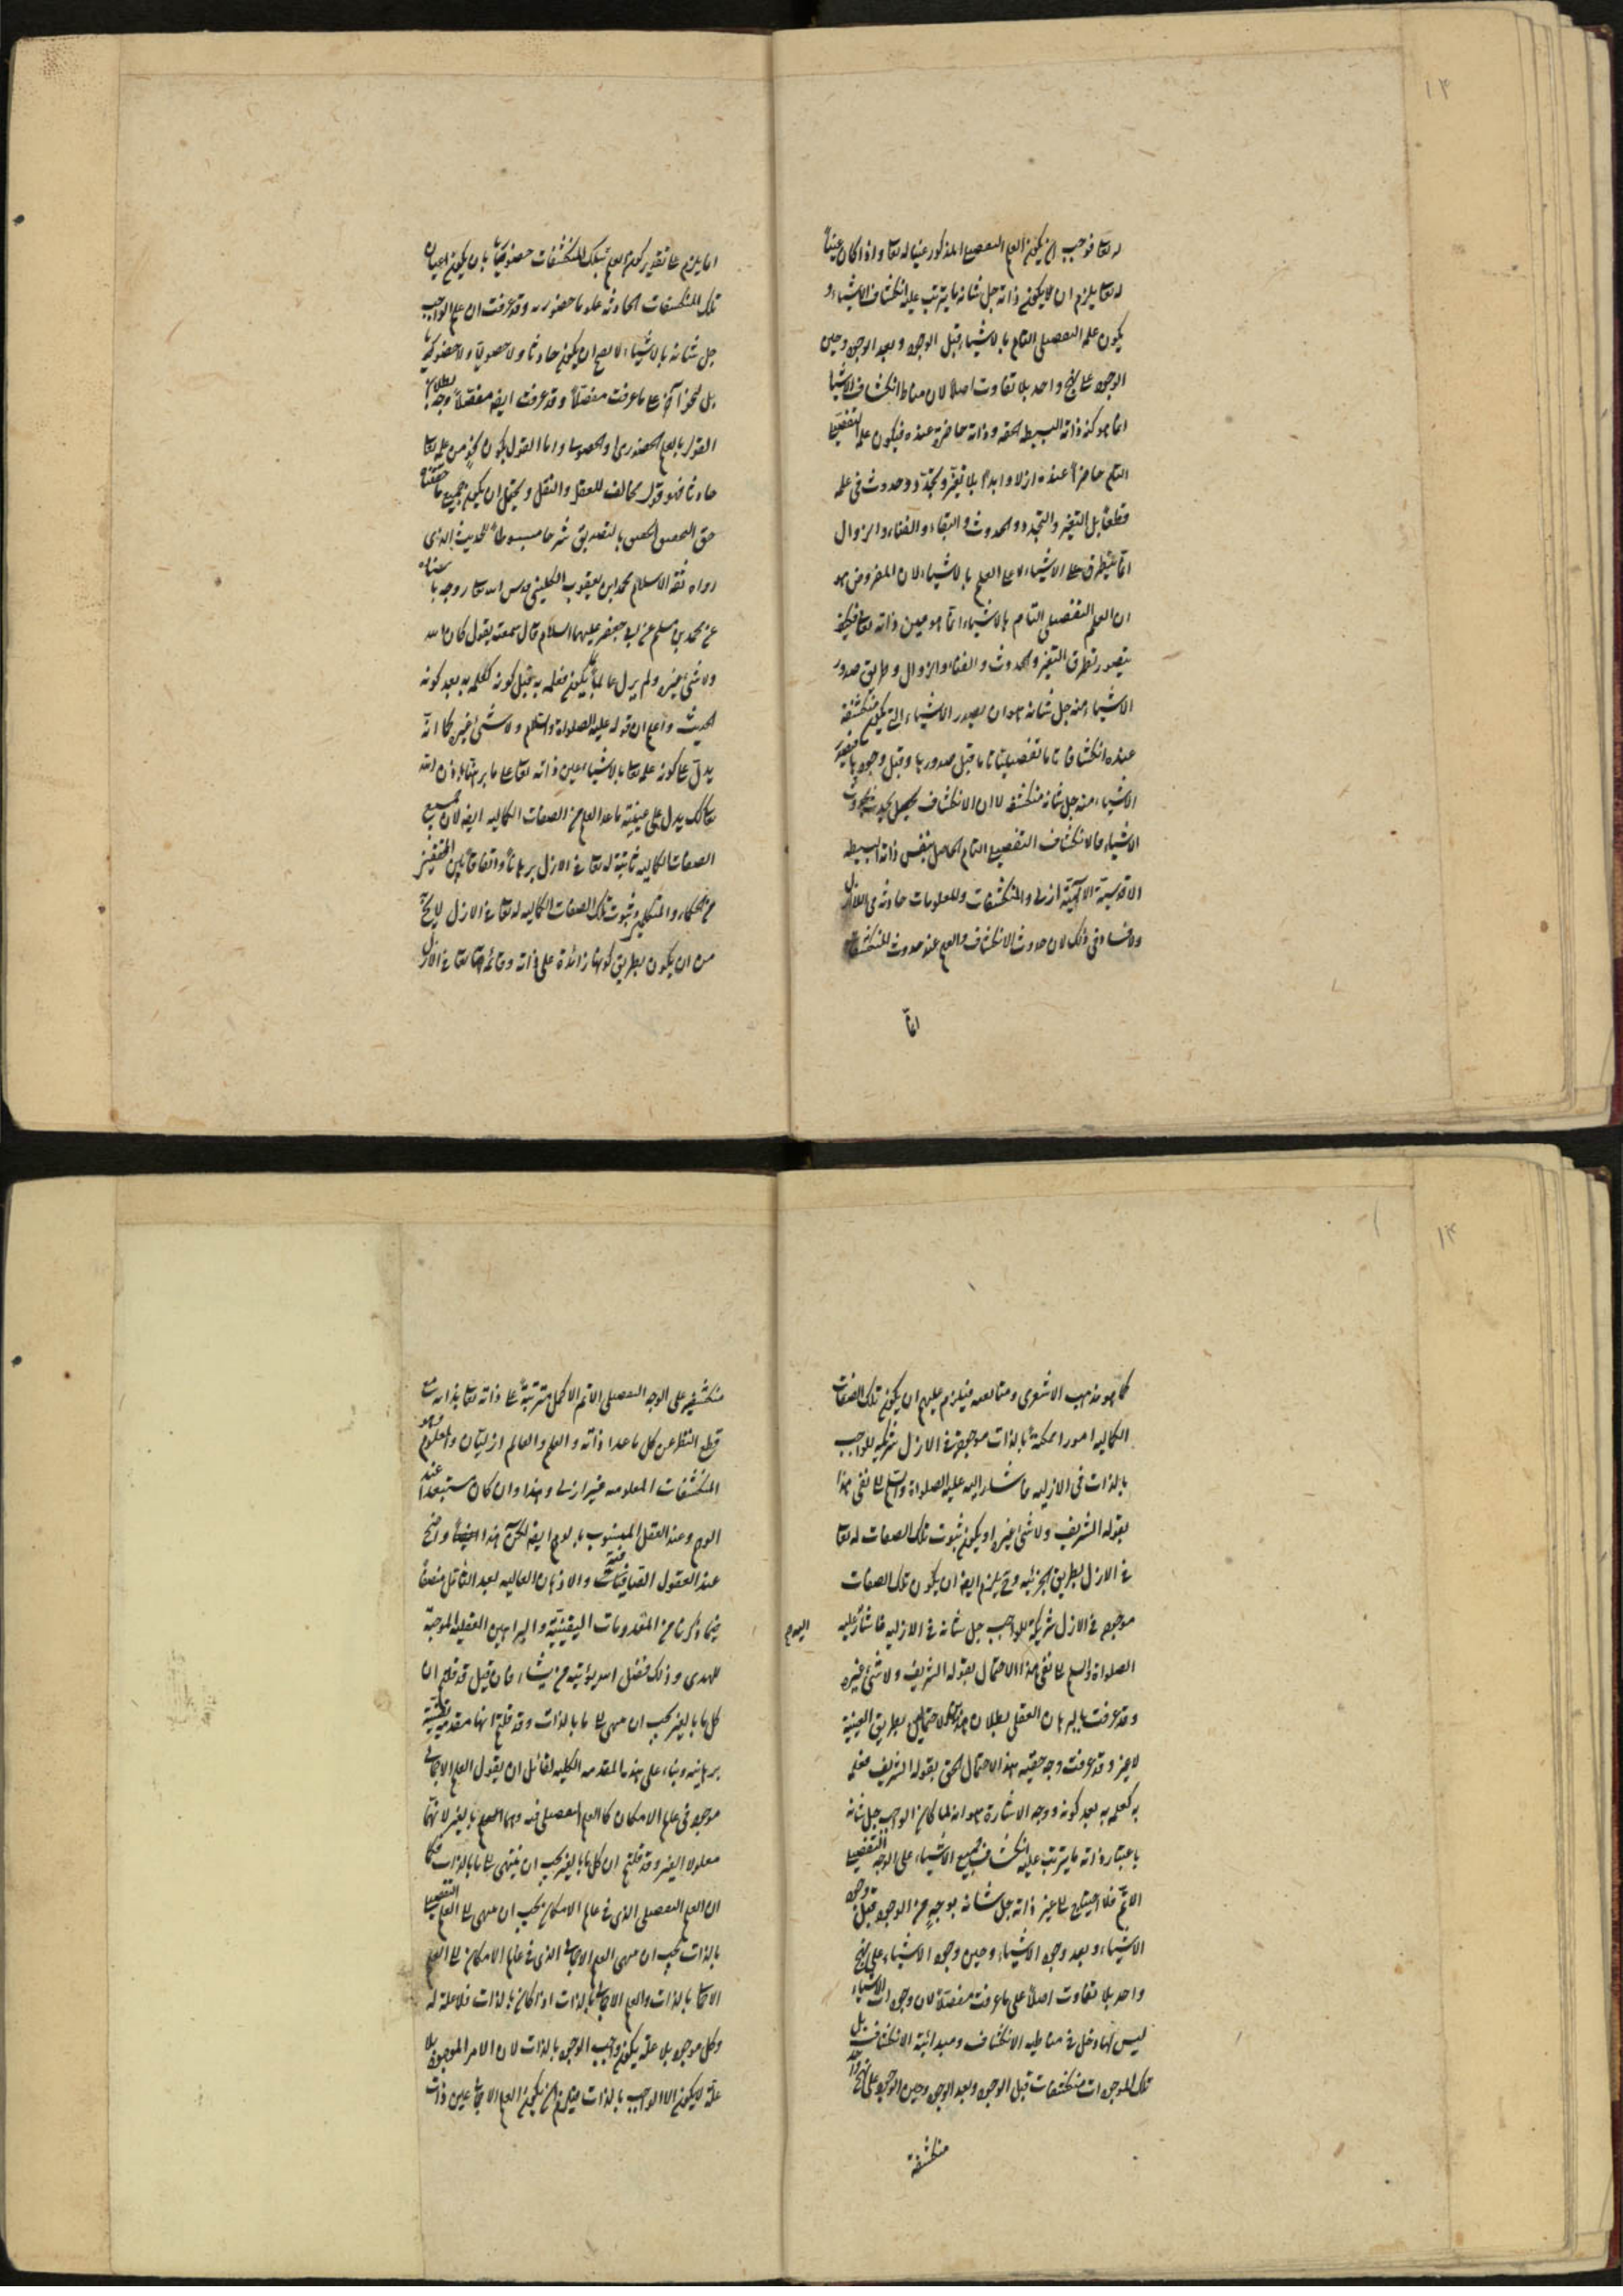 ١٣
له تعا فوجب ان يكون العلم التفصيلى المذكور عينا له تعا واذا كان عينا
له تعا يلزم ان يكون ذاته جل شانه ما يترتب عليه انكشاف الاشياء و
يكون علمه التفصيلى التام بالاشياء قبل الوجود وبعد الوجود وحين
الوجود على نهج واحد بلا تفاوت اصلا لان مناط انكشاف الاشيا
انما هو كنه ذاته البسيطه الحقه وذاته حاضرة عنده فيكون علمه التفصيلى
التام حاضرا عنده ازلا وابدا بلا تغير وتجدد وحدوث فى علمه
قطعا بل التغير والتجدد والحدوث والبقاء والفناء والزوال
انما يتطرق على الاشياء لا على العلم بالاشياء لان المفروض هو
ان العلم التفصيلى التام بالاشياء انما هو عين ذاته تعا فكيف
يتصور تطرق التغير والحدوث والفناء والزوال وطريق صدور
الاشياء منه جل شانه هو ان يصدر الاشياء التى يكون منكشفة
عنده انكشافا تاما تفصيليا تاما قبل صدورها وقبل وجودها فيصير
الاشياء منه جل شانه منكشفه لا ان الانكشاف يحصل بحدوث
الاشياء فالانكشاف التفصيلى التام الحاصل بنفس ذاته البسيطه
الاقدسية الآلهية ازلى والمنكشفات والمعلومات حادثه فى اللاازل
ولا فساد فى ذلك لان حدوث الانكشاف والعلم عند حدوث المنكشفات
انما
انما يلزم على تقدير كون العلم بتلك المنكشفات حضوريا بان يكون اعيان
تلك المنكشفات الحادثه علوما حضوريه وقد عرفت ان علم الواجب
جل شانه بالاشياء لا يصح ان يكون حادثا ولا حصوليا ولا حضوريا
بل نحو آخر على ما عرفت مفصلا وقد عرفت ايضا مفصلا وجه بطلان
القول بالعلم الحضورى والحصولى واما القول بكون نحو من علمه تعا
حادثا فهو قول مخالف للعقل والنقل ويحتمل ان يكون جميع ما حققناه
حق التحقيق الحقيق بالتصديق شرحا مبسوطا للحديث الذى
رواه ثقة الاسلام محمد ابن يعقوب الكلينى قدس الله تعا روحه باسناده
عن محمد بن مسلم عن ابى جعفر عليهما السلام قال سمعته يقول كان الله
ولا شئ غيره ولم يزل عالما بما يكون فعلمه به قبل كونه كعلمه به بعد كونه
الحديث واعلم ان قوله عليه الصلواة والسلم ولا شئ غيره كما انه
يدل على كونه علمه تعا بالاشياء عين ذاته تعا على ما برهناه باذن الله
تعا كذلك يدل على عينية ماعدا العلم من الصفات الكماليه ايضا لان جميع
الصفات الكماليه ثابتة له تعا فى الازل برهانا واتفاقا بين المحققين
من الحكماء والمتكلمين وثبوت تلك الصفات الكماليه له تعا فى الازل لا يخ
من ان يكون بطريق كونها زائدة على ذاته وقائمة بذاته تعا فى الازل
١٤
كما هو مذهب الاشعرى ومتابعيه فيلزم عليهم ان يكون تلك الصفات
الكماليه امورا ممكنة بالذات موجودة فى الازل شريكه للواجب
بالذات فى الازليه فاشار اليه عليه الصلواة والسلم الى نفى هذا
بقوله الشريف ولا شئ غيره او يكون ثبوت تلك الصفات له تعا
فى الازل بطريق الجزئيه وح يلزم ايضا ان يكون تلك الصفات
موجوده فى الازل شريكة للواجب جل شانه فى الازليه فاشار عليه
الصلواة والسلم الى نفى هذا الاحتمال بقوله الشريف ولا شئ غيره
وقد عرفت بالبرهان العقلى بطلان هذين الاحتمالين بطريق العينية
لا غير وقد عرفت وجه حقيه هذا الاحتمال الحق بقوله الشريف فعلمه
به كعلمه به بعد كونه ووجه الاشارة هو انه لما كان الواجب جل شانه
باعتبار ذاته ما يترتب عليه انكشاف جميع الاشياء على الوجه التفصيلى
الاتم فلا يحتاج الى غير ذاته جل شانه بوجه من الوجوه قبل وجود
الاشياء وبعد وجود الاشياء وحين وجود الاشياء على نهج
واحد بلا تفاوت اصلا على ما عرفت مفصلا لان وجودات الاشياء
ليس لها دخل فى مناطيه الانكشاف ومبدائية الانكشاف بل
تلك الموجودات منكشفات قبل الوجود وبعد الوجود وحين الوجود على نهج واحد
منكشفة
منكشفة على الوجه التفصيلى الاتم الاكمل مترتبة على ذاته تعا بذاته مع
قطع النظر عن كل ماعدا ذاته والعلم والعالم ازليان والمعلوم وهو
المنكشفات المعلومه غير ازلى وهذا وان كان مستبعدا عند
الوهم وعند العقل المنسوب بالوهم ايضا لكن هذا ايضا واضح
عند العقول القياسية والاذهان العاليه بعد التامل منصفا
فيما ذكرنا من المقدمات اليقينية والبراهين العقلية الموجبة
للهدى وذلك فضل الله يؤتيه من يشاء فان قيل قد قلتم ان
كل ما بالغير يجب ان ينتهى الى ما بالذات وقد قلتم انها مقدمه يقينية
برهانيه وبناء على هذه المقدمه الكليه لقائل ان يقول العلم الاجمالى
موجود فى عالم الامكان كالعلم التفصيلى فيه وهما العلم بالغير لانهما
معلولا الغير وقد قلتم ان كل ما بالغير يجب ان ينتهى الى ما بالذات فكما
ان العلم التفصيلى الذى فى عالم الامكان يجب ان ينتهى الى العلم التفصيلى
بالذات يجب ان ينتهى العلم الاجمالى الذى فى عالم الامكان الى العلم
الاجمالى بالذات والعلم الاجمالى بالذات اذا كان بالذات فلا علة له
وكل موجود بلا علة يكون واجب الوجود بالذات لان الامر الموجود بلا
علة لا يكون الا الواجب بالذات فيلزم ان يكون العلم الاجمالى عين ذات